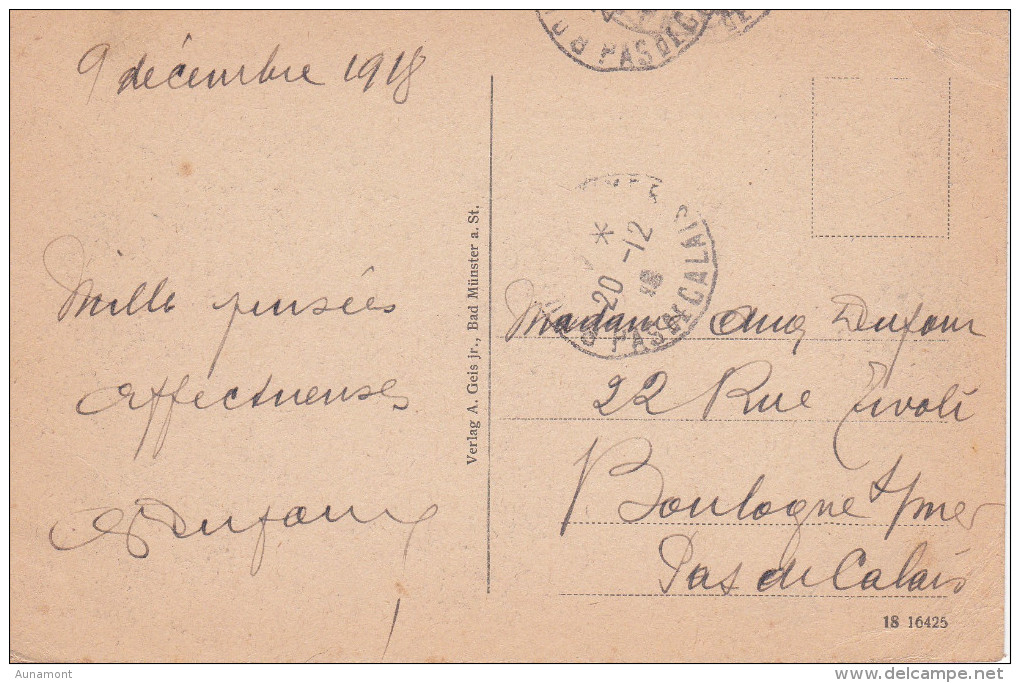 9 décembre 1918
Mille pensées
affectueuses
A Dufour
Verlag A. Geis jr., Bad Münster a. St.
PAS DE C
DE
20 -12
PAS DE CALAIS
Madame Aug Dufour
22 Rue Tivoli
Boulogne s/mer
Pas de Calais
18 16425
Aunamont
delcampe.net